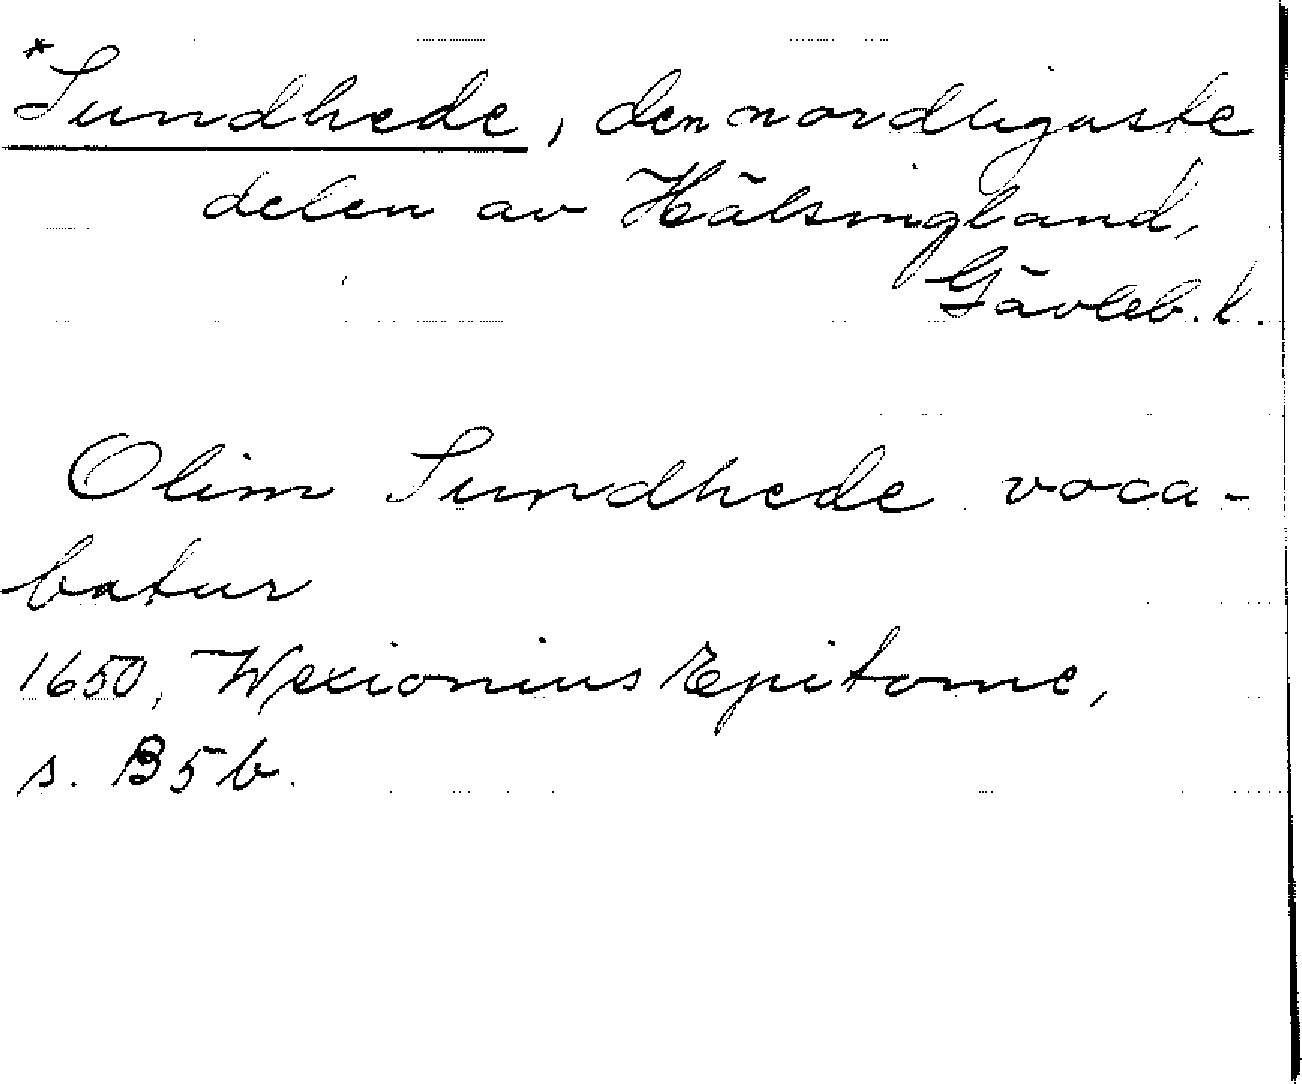 *Sundhede, den nordligaste
delen av Hälsingland,
Gävleb. l.
Olim Sundhede voca-
batur
1650, Wexionius Epitome,
s. B5b.